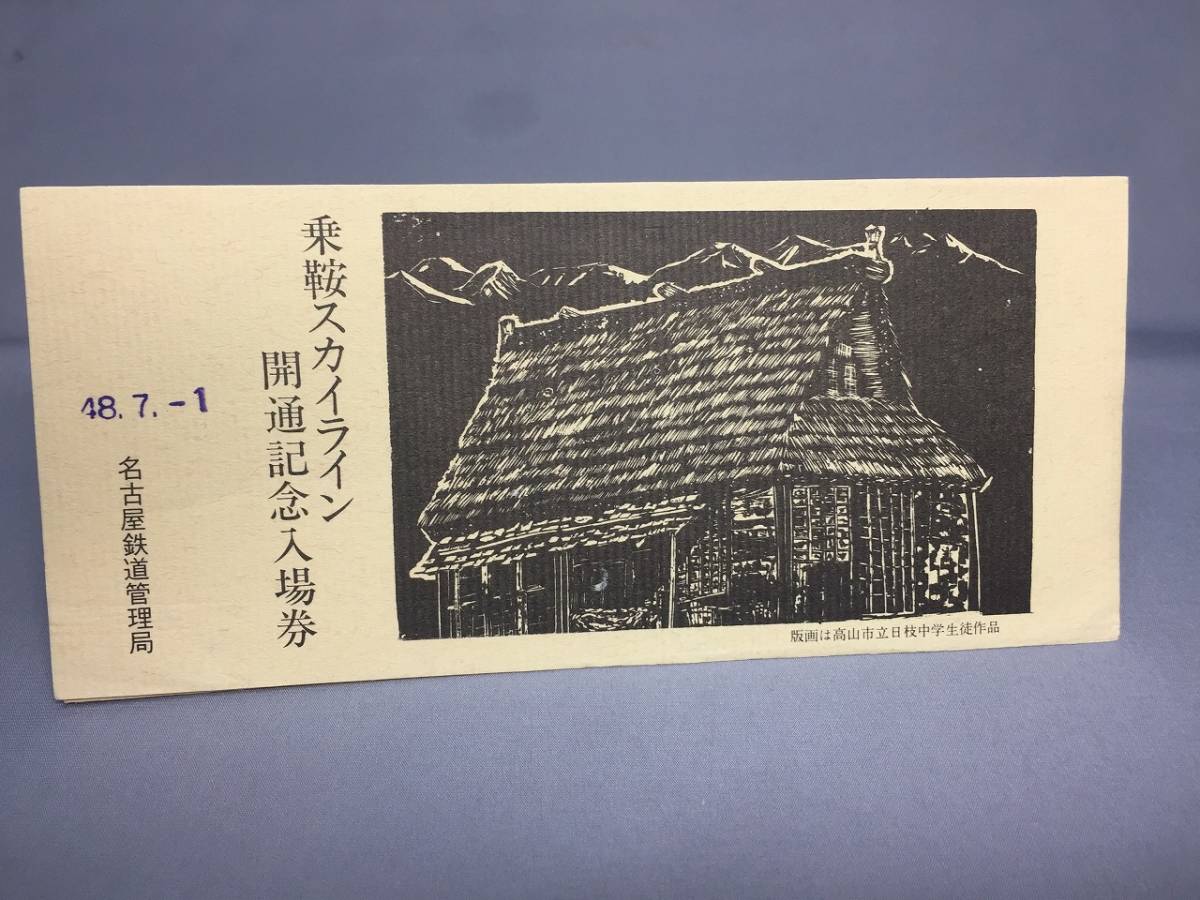 乗鞍スカイライン
開通記念入場券
48.7.-1
名古屋鉄道管理局
版画は高山市立日枝中学生徒作品